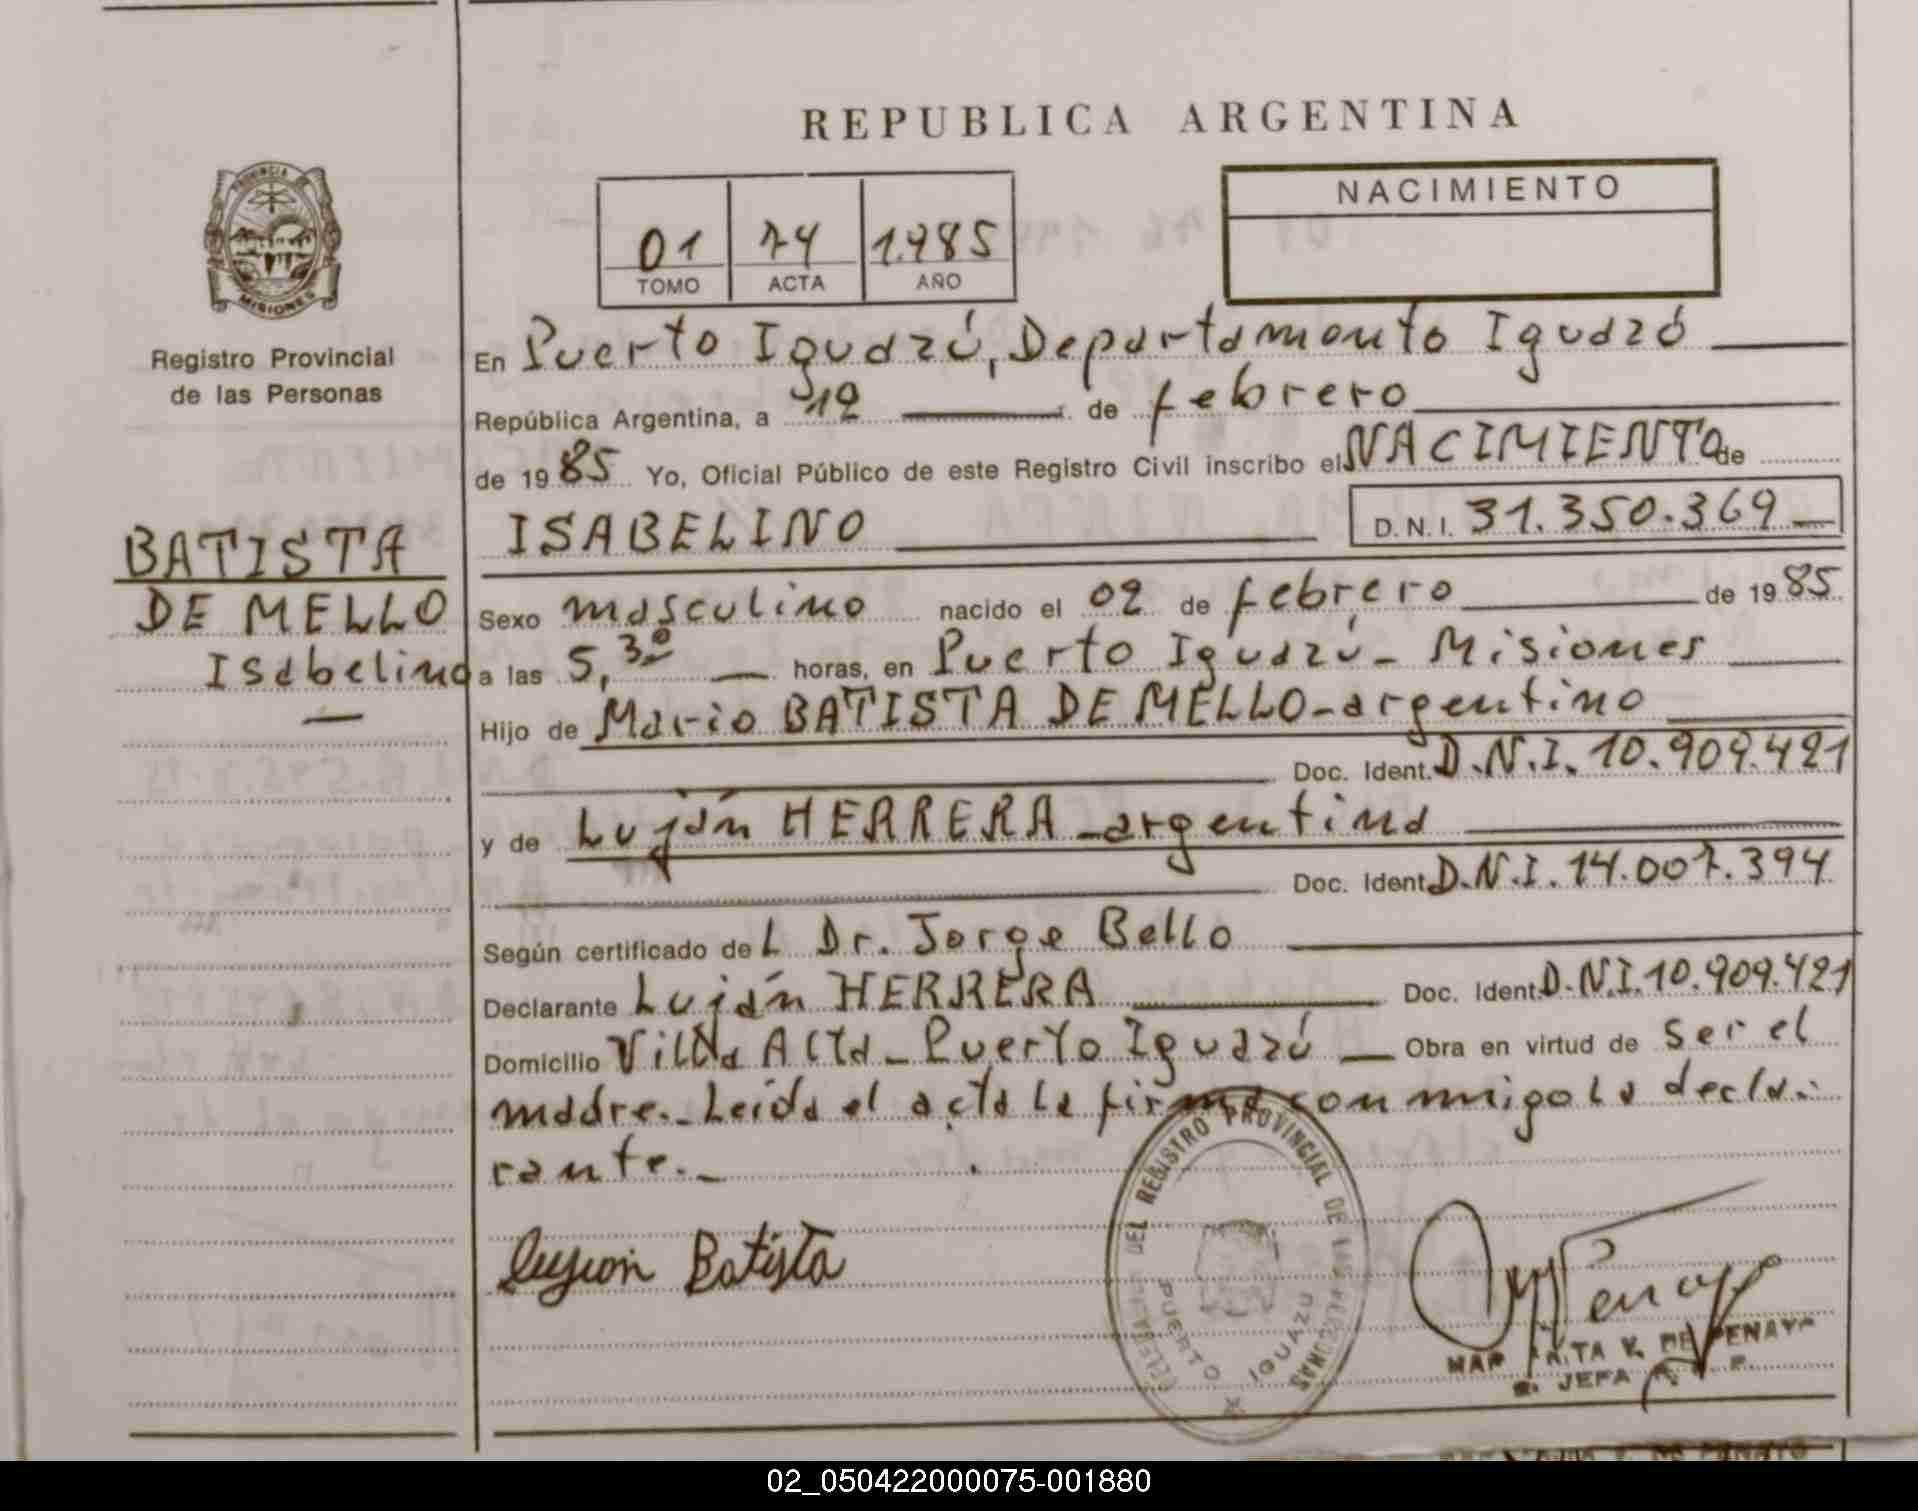 REPUBLICA ARGENTINA
PROVINCIA DE
MISIONES
Registro Provincial
de las Personas
01 74 1.985
TOMO ACTA AÑO
NACIMIENTO
En Puerto Iguazú, Departamento Iguazú
República Argentina, a 12 de febrero
de 1985 Yo, Oficial Público de este Registro Civil inscribo el NACIMIENTO de
ISABELINO D.N.I. 31.350.369
BATISTA
DE MELLO
Isabelino
Sexo masculino nacido el 02 de febrero de 1985
a las 5,30 horas, en Puerto Iguazú - Misiones
Hijo de Mario BATISTA DE MELLO - argentino
Doc. Ident. D.N.I. 10.909.421
y de Luján HERRERA - argentina
Doc. Ident. D.N.I. 14.007.394
Según certificado del Dr. Jorge Bello
Declarante Luján HERRERA Doc. Ident. D.N.I. 10.909.421
Domicilio Villa Alta - Puerto Iguazú Obra en virtud de ser el
madre.- Leída el acta la firma conmigo la decla-
rante.-
DEL REGISTRO PROVINCIAL DE LAS PERSONAS
PUERTO IGUAZU
Batista
DE PENAYO
JEFA
02_050422000075-001880